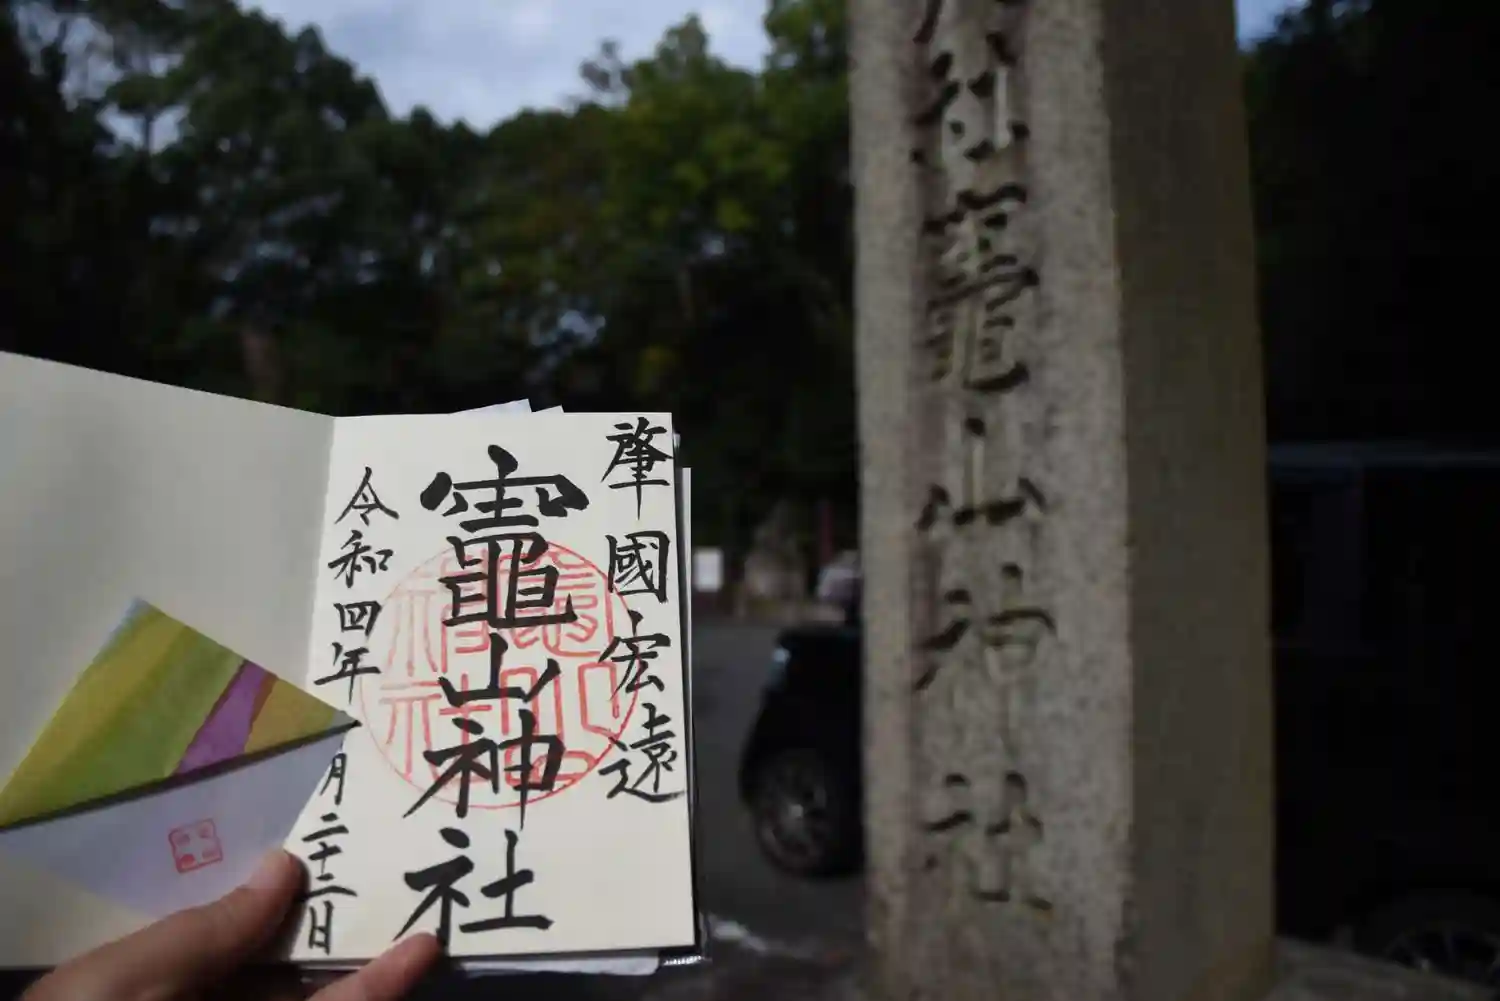 肇國宏遠
竈山神社
令和四年
月二十二日
社竈山神社